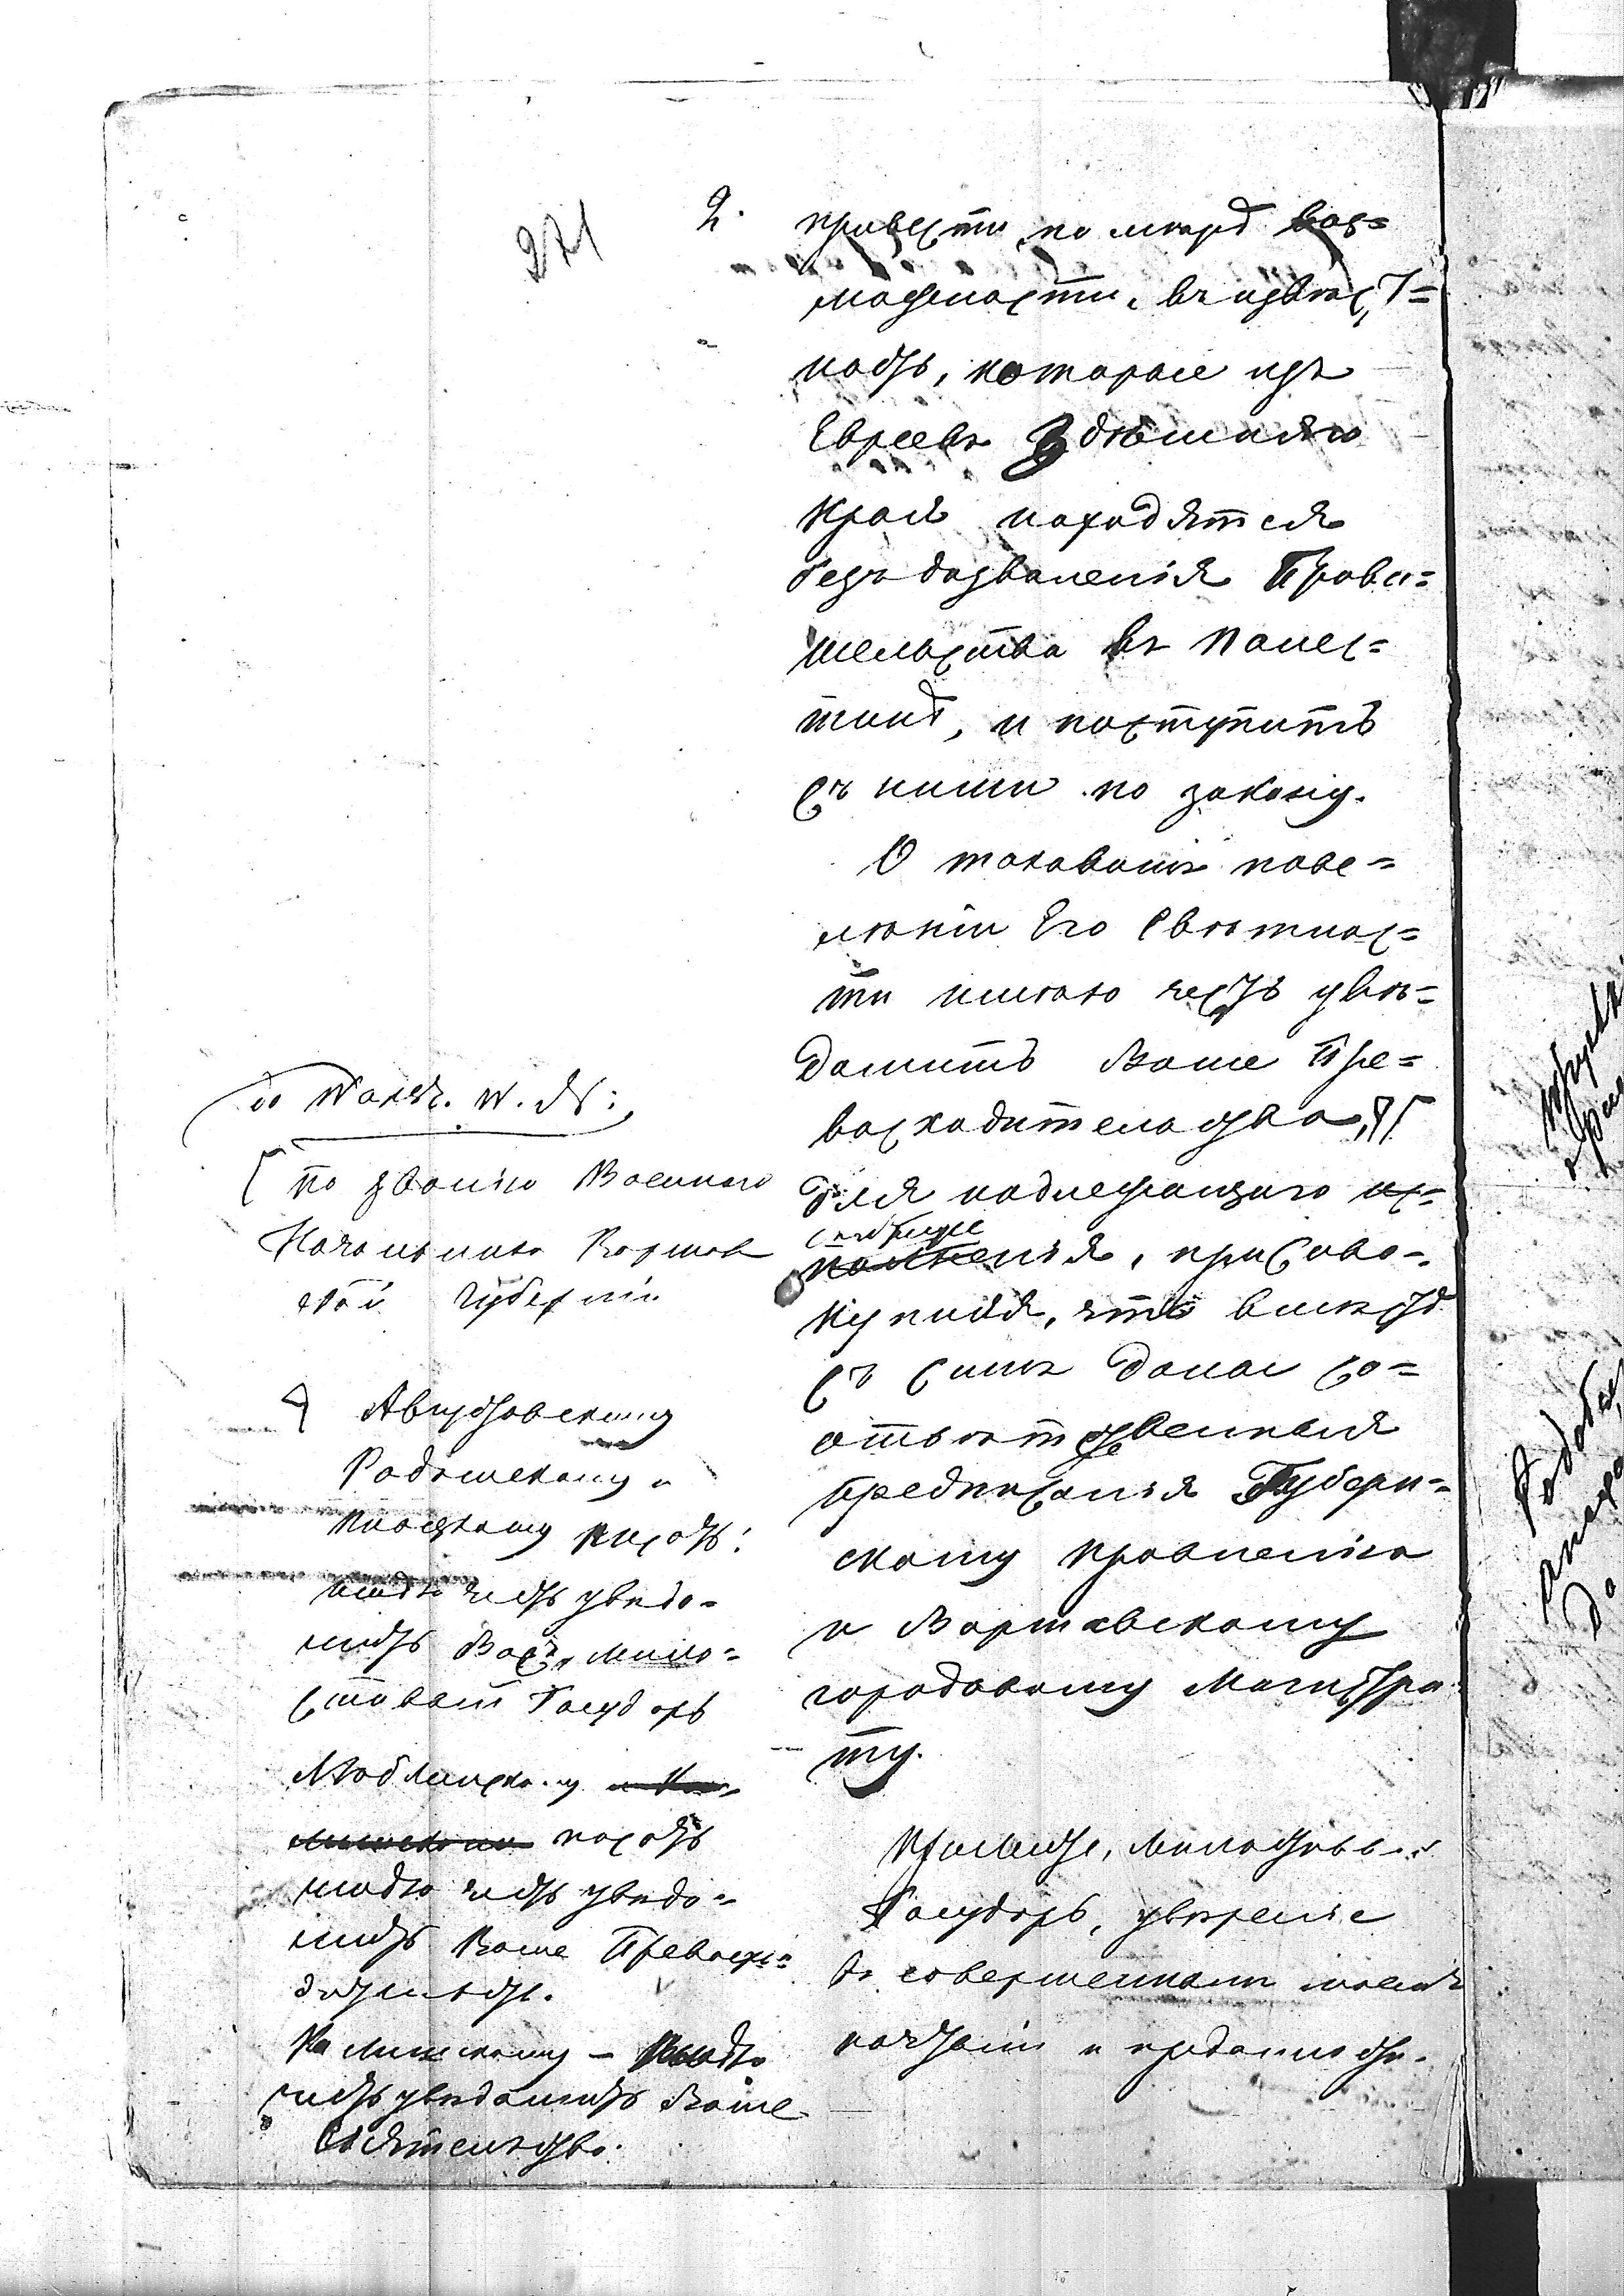 271
2.
привести, по мѣрѣ воз=
можности, въ извѣст=
ность, которые изъ
Евреевъ Здѣшняго
края находятся
безъ дозволенія Прави=
тельства въ Палес=
тинѣ, и поступить
съ ними по закону.
О таковомъ пове=
лѣніи Его Свѣтлос=
ти имѣю честь увѣ=
домить Ваше Пре=
восходительство,
для надлежащаго ис=
полненія, присово=
купляя, что вмѣстѣ
съ симъ даны со=
отвѣтственныя
предписанія Губерн=
скому правленію
и Варшавскому
городовому Магистра=
ту.
Примите, Милостивый
Государь, увѣреніе
въ совершенномъ моемъ
почтеніи и преданности.
по званію Военнаго
Начальника Варшав
ской Губерніи
Августовскому
Радомскому и
Плоцкому писать:
имѣю честь увѣдо=
мить Васъ, Мило=
стивый Государь
Люблинскому
писать
имѣю честь увѣдо=
мить Ваше Превосхо=
дительство.
Калишскому – имѣю
честь увѣдомить Ваше
Сіятельство.